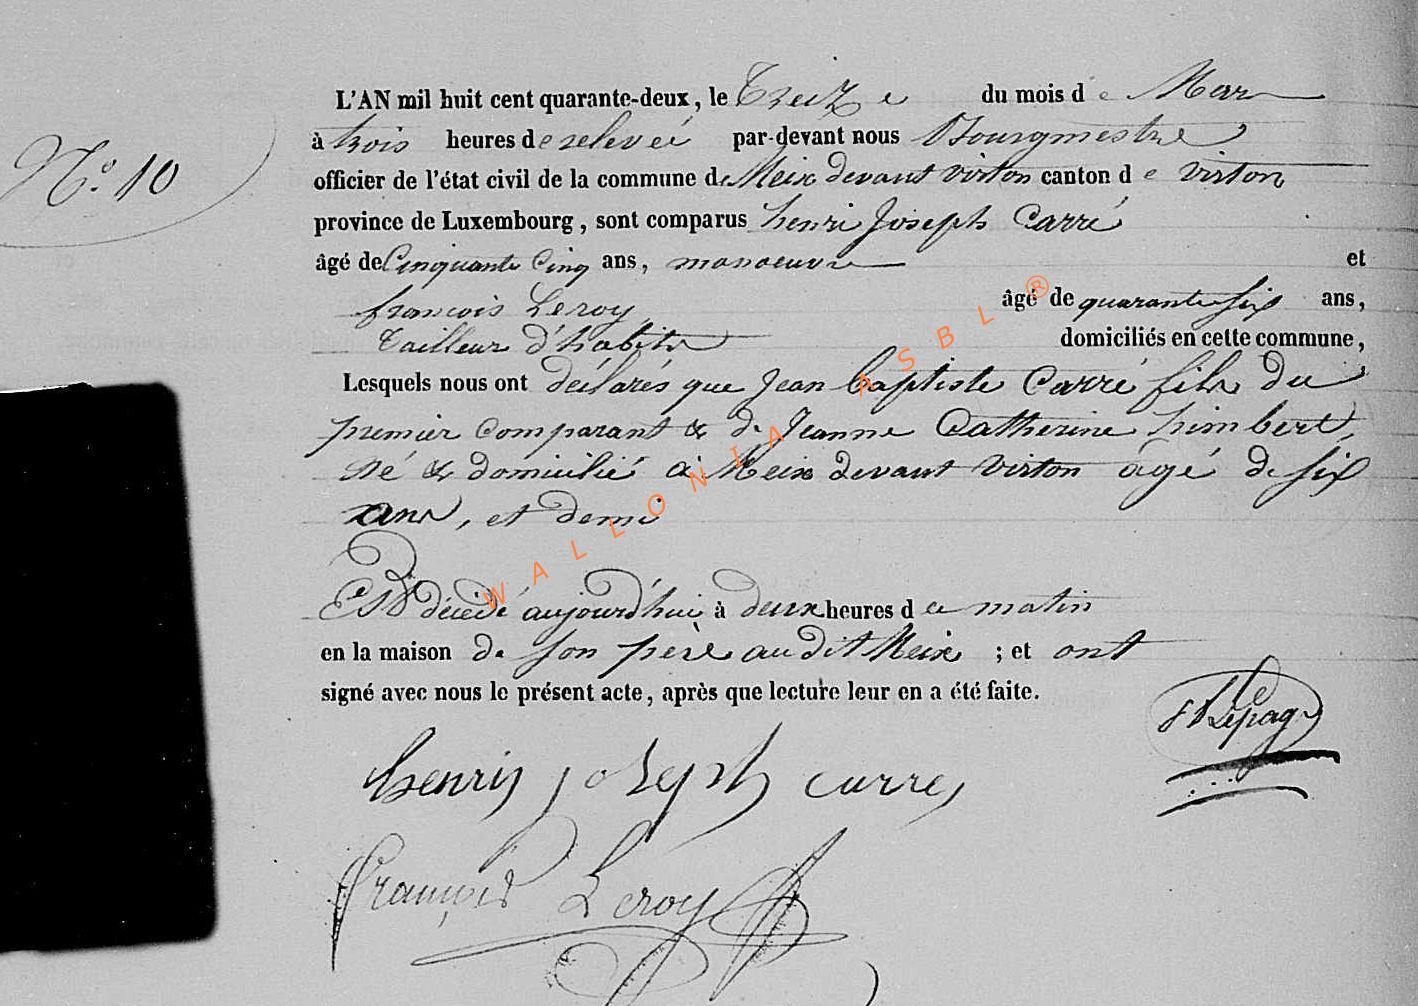 N.° 10
L'AN mil huit cent quarante-deux, le Treize du mois de Mars
à trois heures de relevée par-devant nous Bourgmestre
officier de l'état civil de la commune de Meix devant virton canton de virton
province de Luxembourg, sont comparus henri Joseph Carré
âgé de Cinquante Cinq ans, manoeuvre et
françois Leroy âgé de quarante six ans,
Tailleur d'habits domiciliés en cette commune,
Lesquels nous ont déclarés que Jean baptiste Carré fils du
premier comparant & de Jeanne Catherine himbert,
né & domicilié à Meix devant virton âgé de six
ans, et demi
Est décédé aujourd'hui à deux heures du matin
en la maison de son père audit Meix ; et ont
signé avec nous le présent acte, après que lecture leur en a été faite.
Lepage
henris joseph carre
françois Leroy
WALLONIA ASBL ®